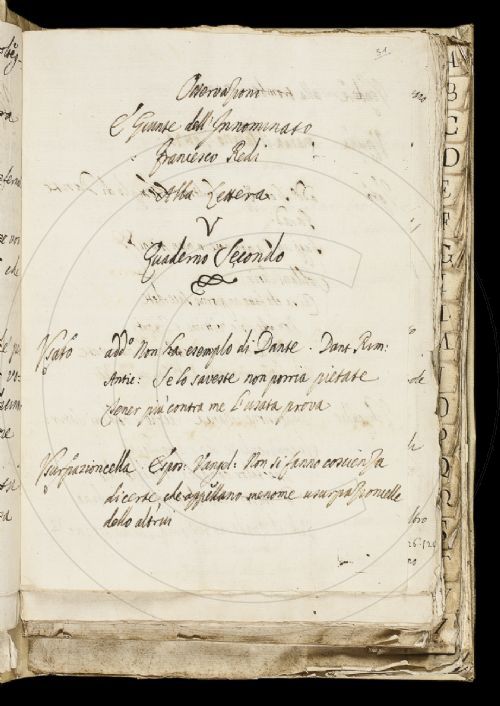 31
Osservazioni
E Giunte dell'Innominato
Francesco Redi
Alla Lettera
V
Quaderno Secondo
Usato add.o Non ha esempio di Dante. Dant. Rim:
Antic: Se lo saveste non porria pietate
Tener più contra me l'usata prova
Usurpazioncella. Espos: Vangel: Non si fanno coscienza
di certe che appellano menome usurpazioncelle
dello altrui
A
B
C
D
E
F
G
I
L
M
N
O
P
Q
R
S